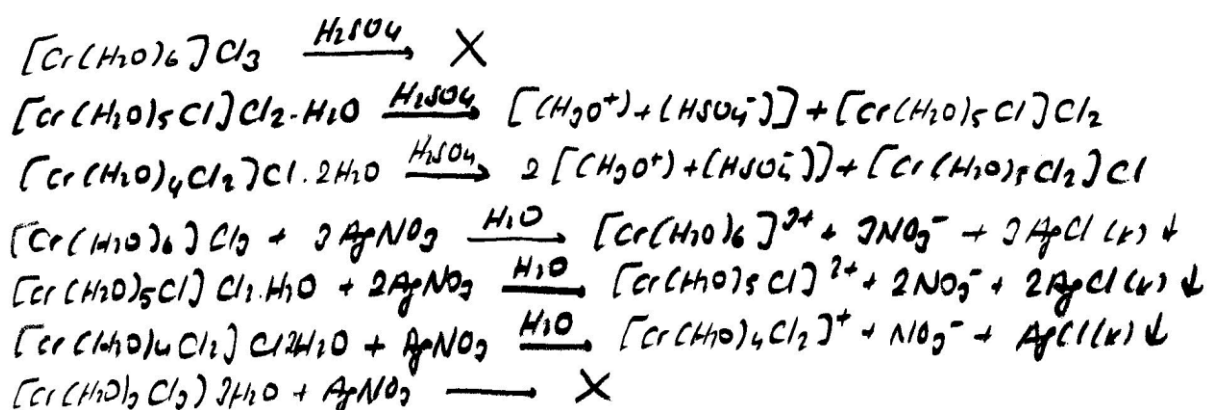 [Cr(H2O)6]Cl3 H2SO4→ X
[Cr(H2O)5Cl]Cl2·H2O H2SO4→ [(H3O⁺)+(HSO4⁻)]+[Cr(H2O)5Cl]Cl2
[Cr(H2O)4Cl2]Cl·2H2O H2SO4→ 2[(H3O⁺)+(HSO4⁻)]+[Cr(H2O)5Cl2]Cl
[Cr(H2O)6]Cl3 + 3AgNO3 H2O→ [Cr(H2O)6]³⁺ + 3NO3⁻ + 3AgCl(k)↓
[Cr(H2O)5Cl]Cl2·H2O + 2AgNO3 H2O→ [Cr(H2O)5Cl]²⁺ + 2NO3⁻ + 2AgCl(k)↓
[Cr(H2O)4Cl2]Cl2H2O + AgNO3 H2O→ [Cr(H2O)4Cl2]⁺ + NO3⁻ + AgCl(k)↓
[Cr(H2O)3Cl3)3H2O + AgNO3 ⟶ X